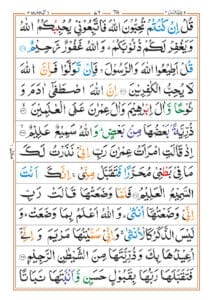 قُلْ اِنْ كُنْتُمْ تُحِبُّوْنَ اللّٰهَ فَاتَّبِعُوْنِيْ يُحْبِبْكُمُ اللّٰهُ
وَيَغْفِرْ لَكُمْ ذُنُوْبَكُمْ ؕ وَاللّٰهُ غَفُوْرٌ رَّحِيْمٌ
قُلْ اَطِيْعُوا اللّٰهَ وَالرَّسُوْلَ ۚ فَاِنْ تَوَلَّوْا فَاِنَّ اللّٰهَ
لَا يُحِبُّ الْكٰفِرِيْنَ اِنَّ اللّٰهَ اصْطَفٰٓى اٰدَمَ وَ
نُوْحًا وَّاٰلَ اِبْرٰهِيْمَ وَاٰلَ عِمْرٰنَ عَلَى الْعٰلَمِيْنَ
ذُرِّيَّةًۢ بَعْضُهَا مِنْۢ بَعْضٍ ؕ وَاللّٰهُ سَمِيْعٌ عَلِيْمٌ
اِذْ قَالَتِ امْرَاَتُ عِمْرٰنَ رَبِّ اِنِّيْ نَذَرْتُ لَكَ
مَا فِيْ بَطْنِيْ مُحَرَّرًا فَتَقَبَّلْ مِنِّيْ ۚ اِنَّكَ اَنْتَ
السَّمِيْعُ الْعَلِيْمُ فَلَمَّا وَضَعَتْهَا قَالَتْ رَبِّ
اِنِّيْ وَضَعْتُهَآ اُنْثٰى ؕ وَاللّٰهُ اَعْلَمُ بِمَا وَضَعَتْ ؕ وَ
لَيْسَ الذَّكَرُ كَالْاُنْثٰى ۚ وَاِنِّيْ سَمَّيْتُهَا مَرْيَمَ وَاِنِّيْٓ
اُعِيْذُهَا بِكَ وَذُرِّيَّتَهَا مِنَ الشَّيْطٰنِ الرَّجِيْمِ
فَتَقَبَّلَهَا رَبُّهَا بِقَبُوْلٍ حَسَنٍ وَّاَنْۢبَتَهَا نَبَاتًا